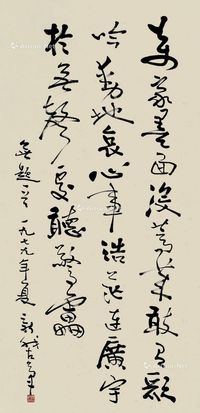 万家墨面没蒿莱敢有歌
吟动地哀心事浩茫连广宇
于无声处听惊雷
无题一首 一九七九年夏